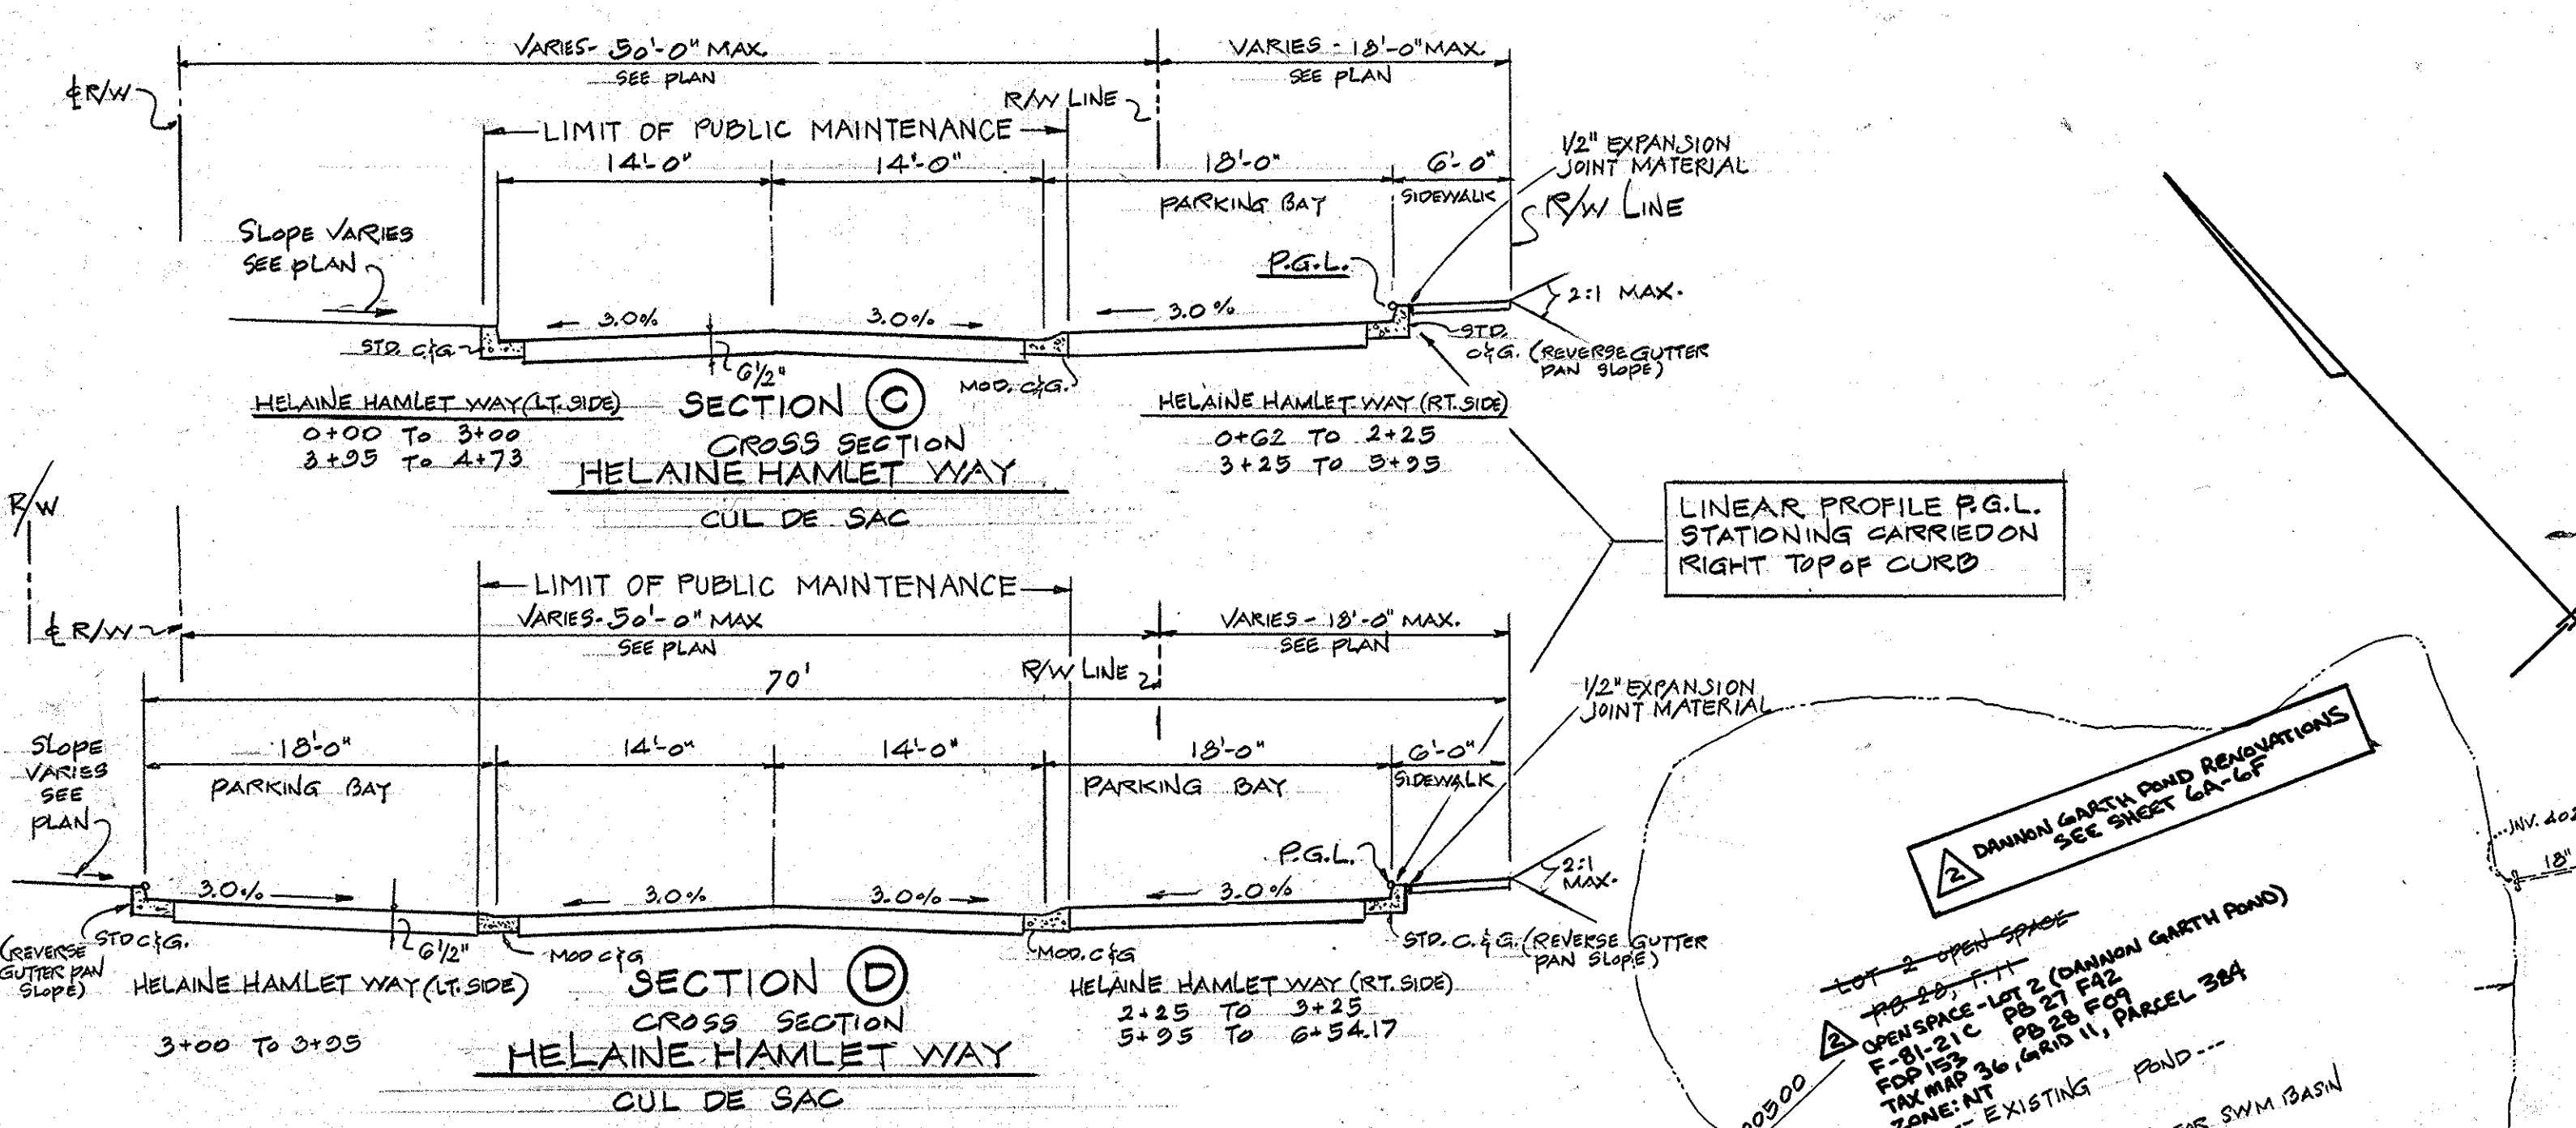 VARIES- 50'-0" MAX.
SEE PLAN
VARIES - 18'-0" MAX.
SEE PLAN
℄ R/W
R/W LINE
LIMIT OF PUBLIC MAINTENANCE
14'-0"
14'-0"
18'-0"
6'-0"
PARKING BAY
SIDEWALK
1/2" EXPANSION
JOINT MATERIAL
R/W LINE
SLOPE VARIES
SEE PLAN
P.G.L.
2:1 MAX.
3.0%
3.0%
3.0%
STD. C&G
6 1/2"
MOD. C&G.
STD.
C&G. (REVERSE GUTTER
PAN SLOPE)
HELAINE HAMLET WAY (LT. SIDE)
0+00 TO 3+00
3+95 TO 4+73
SECTION C
CROSS SECTION
HELAINE HAMLET WAY
CUL DE SAC
HELAINE HAMLET WAY (RT. SIDE)
0+62 TO 2+25
3+25 TO 5+95
LINEAR PROFILE P.G.L.
STATIONING CARRIED ON
RIGHT TOP OF CURB
R/W
℄ R/W
LIMIT OF PUBLIC MAINTENANCE
VARIES- 50'-0" MAX
SEE PLAN
VARIES - 18'-0" MAX.
SEE PLAN
R/W LINE
70'
1/2" EXPANSION
JOINT MATERIAL
SLOPE
VARIES
SEE
PLAN
18'-0"
14'-0"
14'-0"
18'-0"
6'-0"
PARKING BAY
PARKING BAY
SIDEWALK
P.G.L.
2:1
MAX.
3.0%
3.0%
3.0%
3.0%
(REVERSE
GUTTER PAN
SLOPE)
STD C&G.
6 1/2"
MOD C&G
MOD. C&G
STD. C. & G. (REVERSE GUTTER
PAN SLOPE)
HELAINE HAMLET WAY (LT. SIDE)
3+00 TO 3+95
SECTION D
CROSS SECTION
HELAINE HAMLET WAY
CUL DE SAC
HELAINE HAMLET WAY (RT. SIDE)
2+25 TO 3+25
5+95 TO 6+54.17
2 DANNON GARTH POND RENOVATIONS
SEE SHEET 6A-6F
INV. 402
18"
LOT 2 OPEN SPACE
PB 28, F.11
2 OPEN SPACE-LOT 2 (DANNON GARTH POND)
F-81-21C PB 27 F42
FDP 153 PB 28 F09
TAX MAP 36, GRID 11, PARCEL 384
ZONE: NT
EXISTING POND
SWM BASIN